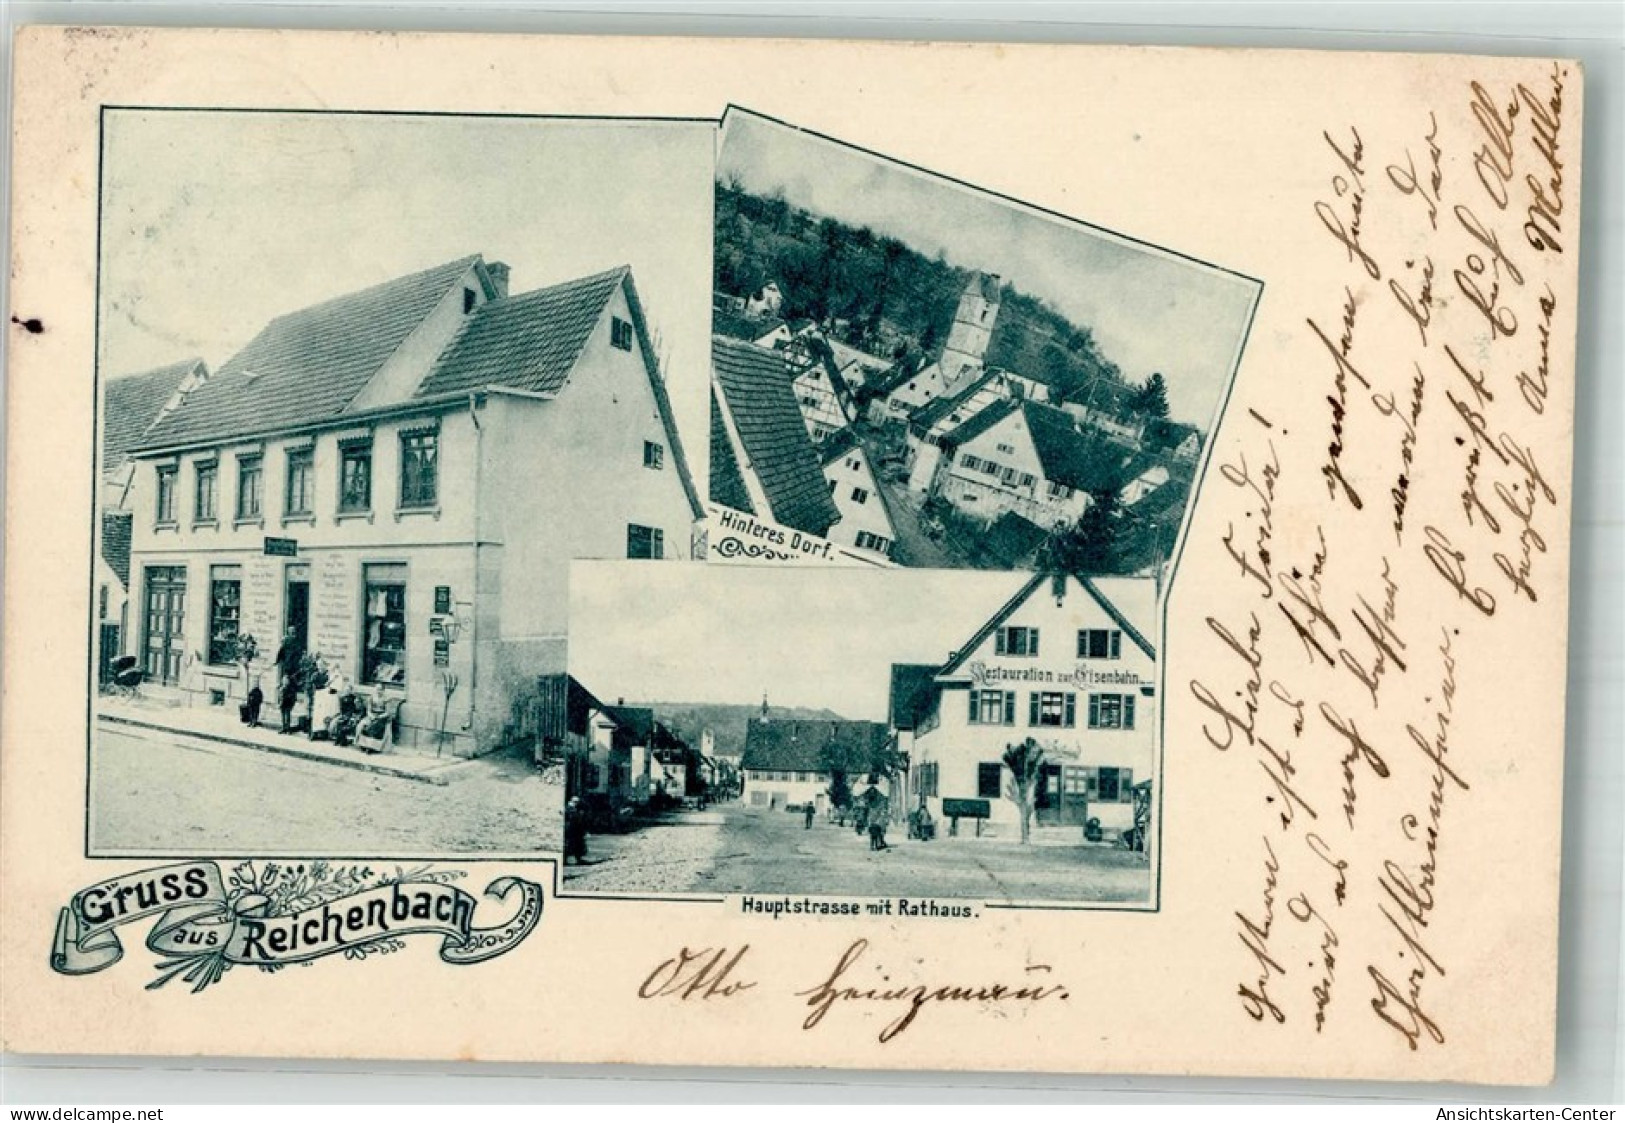 Hinteres Dorf.
Restauration zur Eisenbahn.
Hauptstrasse mit Rathaus.
Gruss
aus
Reichenbach
Otto Heinzmann.
Liebe Frieda!
Gestern ist es schön gewesen heute
wird es noch besser werden bei der
Christbaumfeier. Es grüßt Euch Alle
herzlich Anna Mattler.
www.delcampe.net
Ansichtskarten-Center